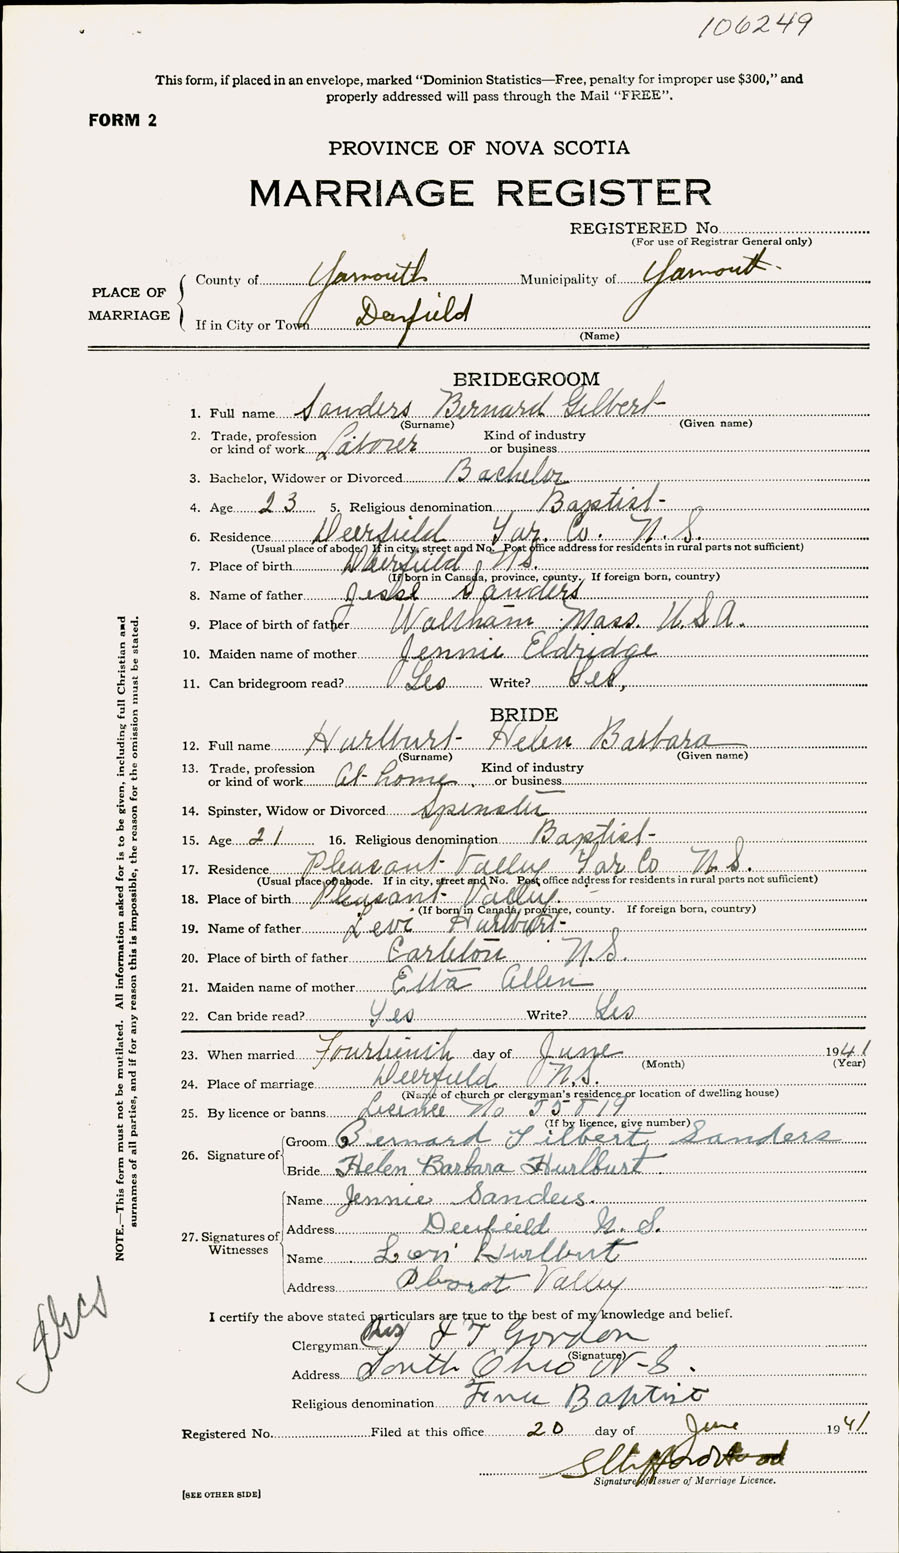 106249
This form, if placed in an envelope, marked "Dominion Statistics—Free, penalty for improper use $300," and
properly addressed will pass through the Mail "FREE".
FORM 2
PROVINCE OF NOVA SCOTIA
MARRIAGE REGISTER
REGISTERED No.
(For use of Registrar General only)
PLACE OF MARRIAGE
County of Yarmouth Municipality of Yarmouth
If in City or Town Deerfield
(Name)
BRIDEGROOM
1. Full name Sanders Bernard Gilbert
(Surname) (Given name)
2. Trade, profession or kind of work Laborer Kind of industry or business
3. Bachelor, Widower or Divorced Bachelor
4. Age 23 5. Religious denomination Baptist
6. Residence Deerfield Yar. Co. N.S.
(Usual place of abode. If in city, street and No. Post office address for residents in rural parts not sufficient)
7. Place of birth Deerfield, N.S.
(If born in Canada, province, county. If foreign born, country)
8. Name of father Jesse Sanders
9. Place of birth of father Waltham Mass. U.S.A.
10. Maiden name of mother Jennie Eldridge
11. Can bridegroom read? Yes Write? Yes,
BRIDE
12. Full name Hurlburt Helen Barbara
(Surname) (Given name)
13. Trade, profession or kind of work At home Kind of industry or business
14. Spinster, Widow or Divorced Spinster
15. Age 21 16. Religious denomination Baptist
17. Residence Pleasant Valley Yar Co N.S.
(Usual place of abode. If in city, street and No. Post office address for residents in rural parts not sufficient)
18. Place of birth Pleasant Valley.
(If born in Canada, province, county. If foreign born, country)
19. Name of father Levi Hurlburt
20. Place of birth of father Carleton N.S.
21. Maiden name of mother Etta Allen
22. Can bride read? Yes Write? Yes
23. When married Fourteenth day of June 1941
(Month) (Year)
24. Place of marriage Deerfield N.S.
(Name of church or clergyman's residence or location of dwelling house)
25. By licence or banns Licence No 55819
(If by licence, give number)
26. Signature of
Groom Bernard Gilbert Sanders
Bride Helen Barbara Hurlburt
27. Signatures of Witnesses
Name Jennie Sanders.
Address Deerfield N.S.
Name Levi Hurlburt
Address Valley
I certify the above stated particulars are true to the best of my knowledge and belief.
Clergyman (Rev) J T Gordon
(Signature)
Address South Ohio N-S.
Religious denomination Baptist
Registered No. Filed at this office 20 day of June 1941
Signature of Issuer of Marriage Licence.
[SEE OTHER SIDE]
NOTE.—This form must not be mutilated. All information asked for is to be given, including full Christian and
surnames of all parties, and if for any reason this is impossible, the reason for the omission must be stated.